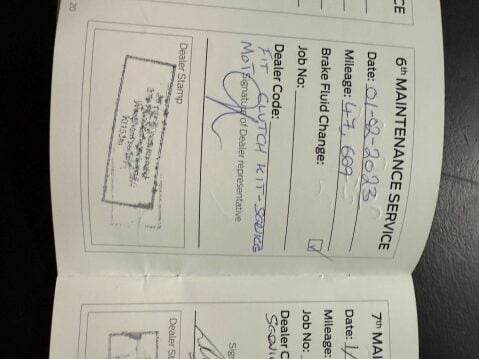 20
CE
6th MAINTENANCE SERVICE
Date: 01-02-2023
Mileage: 47,609
Brake Fluid Change:
Job No:
Dealer Code:
FIT CLUTCH KIT - SERVICE
MOT
Signature of Dealer representative
Dealer Stamp
7th MAI
Date:
Mileage:
Job No:
Dealer C
Sign
Dealer St